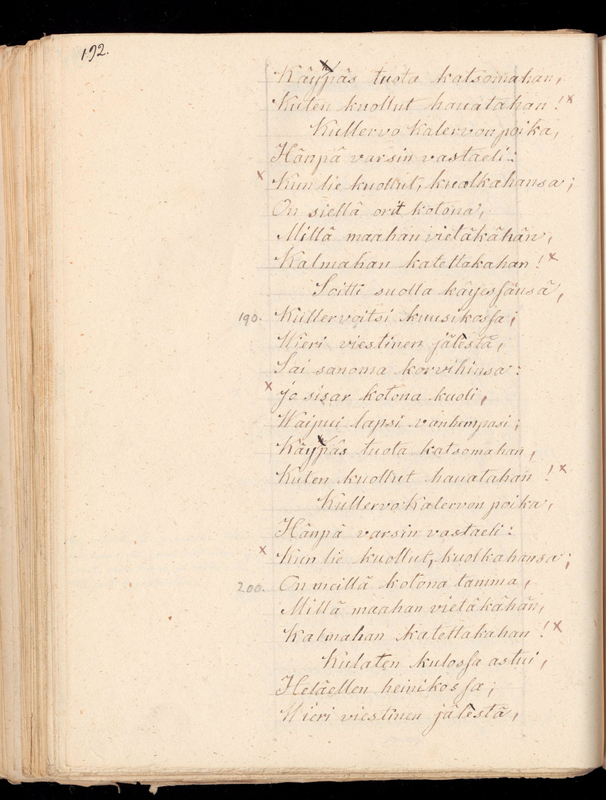 192.
Käypäs tuota katsomahan,
Kuten kuollut hauatahan!
Kullervo Kalervon poika,
Hänpä varsin vastaeli:
Kun lie kuollut, kuolkahansa;
On siellä orit kotona,
Millä maahan vietäkähän,
Kalmahan katettakahan!
Soitti suolla käyessänsä,
190. Kullervoitsi kuusikossa;
Wieri viestinen jälestä,
Sai sanoma korvihinsa:
jo sisar kotona kuoli,
Waipui lapsi vanhimpasi;
Käypäs tuota katsomahan,
Kuten kuollut hauatahan!
Kullervo Kalervon poika,
Hänpä varsin vastaeli:
Kun lie kuollut, kuolkahansa;
200. On meillä kotona tamma,
Millä maahan vietäkähän,
Kalmahan katettakahan!
Kulaten kulossa astui,
Heläellen heinikossa;
Wieri viestinen jälestä,